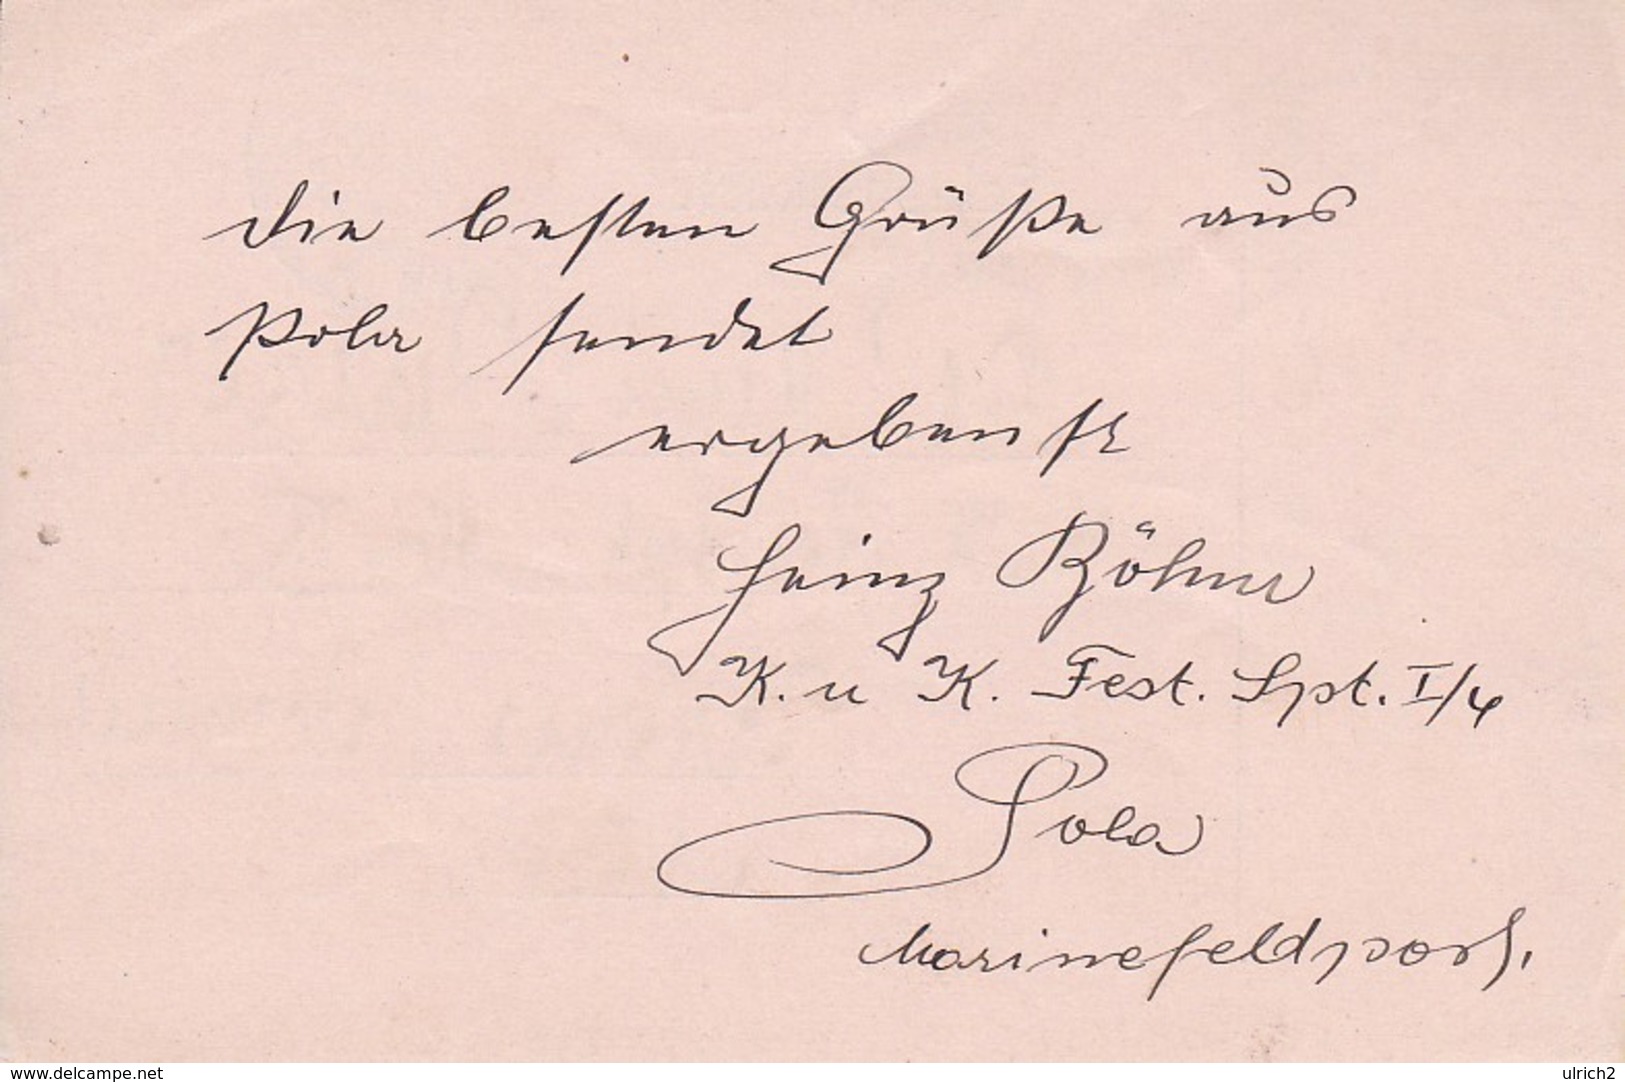 die besten Grüße aus
Pola sendet
ergebenst
Heinz Böhm
K. u K. Fest. Spt. I/4
Pola
Marinefeldpost.
www.delcampe.net
ulrich2